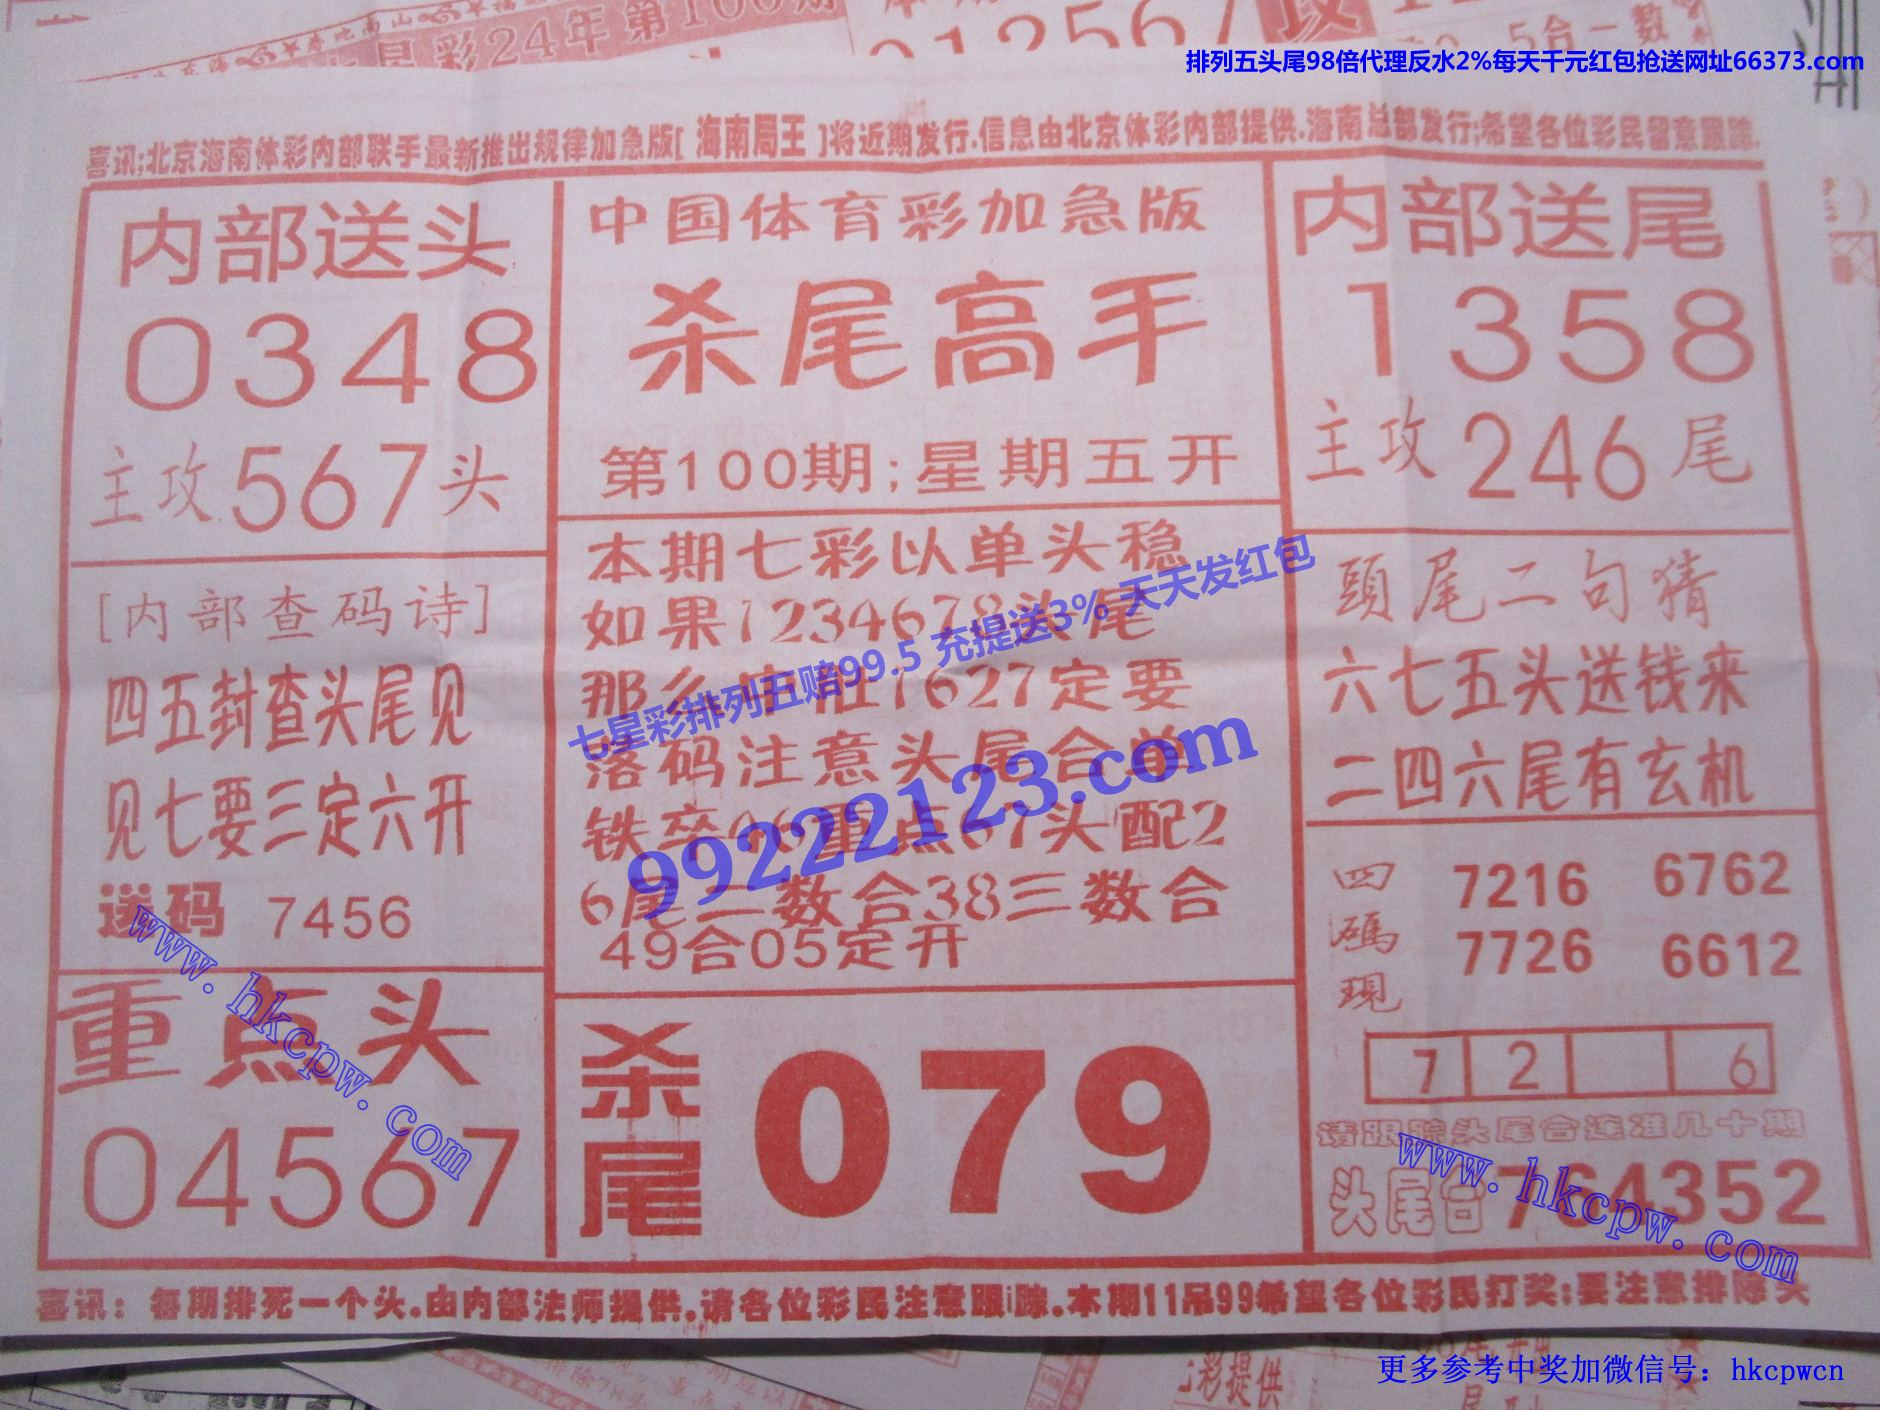 七星彩24年第100期
5合一数
排列五头尾98倍代理反水2%每天千元红包抢送网址66373.com
喜讯;北京海南体彩内部联手最新推出规律加急版[ 海南局王 ]将近期发行.信息由北京体彩内部提供.海南总部发行;希望各位彩民留意跟踪.
内部送头
0348
主攻567头
[内部查码诗]
四五封查头尾见
见七要三定六开
送码 7456
重点头
04567
中国体育彩加急版
杀尾高手
第100期;星期五开
本期七彩以单头稳
如果1234678头尾
那么 1627定要
落码注意头尾合单
铁卒 重点67头配2
6尾二数合38三数合
49合05定开
杀尾 079
内部送尾
1358
主攻246尾
頭尾二句猜
六七五头送钱来
二四六尾有玄机
四碼現
7216 6762
7726 6612
7 2 6
请跟踪头尾合连准几十期
头尾合 764352
喜讯：每期排死一个头.由内部法师提供.请各位彩民注意跟i踪.本期11吊99希望各位彩民打奖;要注意排除头
七星彩排列五赔99.5 充提送3% 天天发红包
99222123.com
www.hkcpw.com
www.hkcpw.com
七彩提供
更多参考中奖加微信号：hkcpwcn